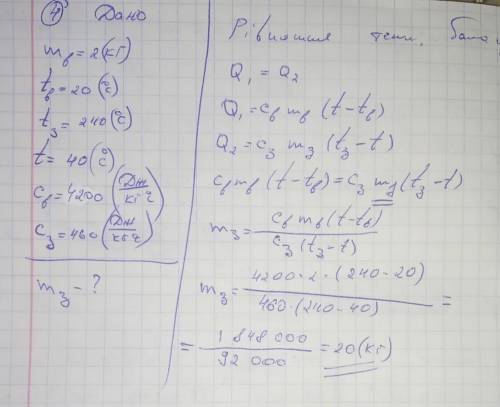 ④ Дано
m_в = 2 (кг)
t_в = 20 (°C)
t_з = 240 (°C)
t = 40 (°C)
c_в = 4200 (Дж/кг°C)
c_з = 460 (Дж/кг°C)
m_з - ?
Рівняння тепл.
Q₁ = Q₂
Q₁ = c_в m_в (t - t_в)
Q₂ = c_з m_з (t_з - t)
c_в m_в (t - t_в) = c_з m_з (t_з - t)
m_з = c_в m_в (t - t_в) / c_з (t_з - t)
m_з = 4200 · 2 · (240 - 20) / 460 · (240 - 40) =
= 1 848 000 / 92 000 = 20 (кг)